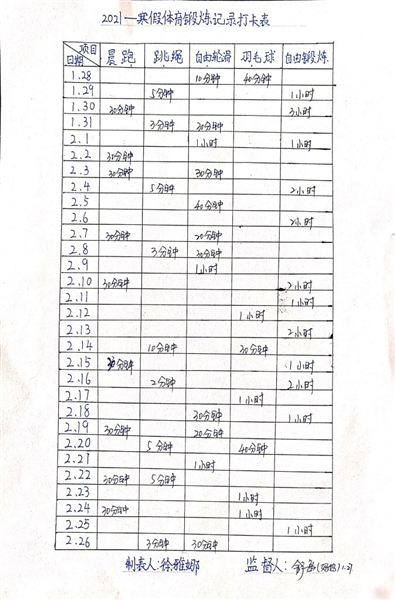 2021—寒假体育锻炼记录打卡表
项目 日期 晨跑 跳绳 自由轮滑 羽毛球 自由锻炼
1.28 10分钟 40分钟
1.29 5分钟 1小时
1.30 30分钟 3小时
1.31 3分钟 30分钟
2.1 1小时 1小时
2.2 30分钟
2.3 30分钟 30分钟
2.4 5分钟 2小时
2.5 40分钟
2.6 2小时
2.7 30分钟 20分钟
2.8 3分钟 30分钟
2.9 1小时
2.10 30分钟 2小时
2.11 1小时
2.12 1小时
2.13 2小时
2.14 10分钟 30分钟
2.15 30分钟 1小时
2.16 2分钟 2小时
2.17 1小时
2.18 30分钟 1小时
2.19 30分钟 20分钟
2.20 5分钟 40分钟
2.21 1小时
2.22 30分钟 5分钟
2.23 1小时
2.24 30分钟 1小时
2.25 1小时
2.26 3分钟 30分钟
制表人:徐雅娜 监督人: